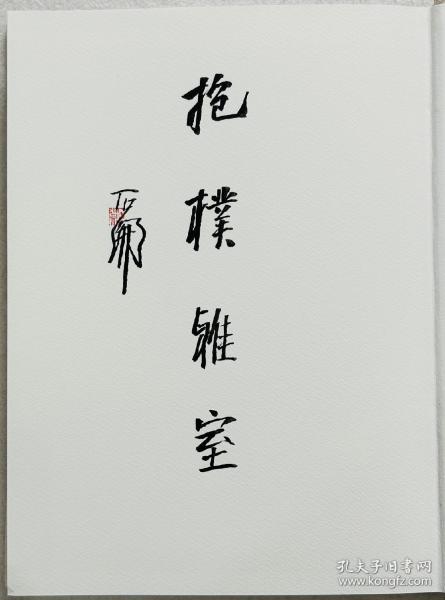 抱樸雅室
孔夫子旧书网
www.kongfz.com